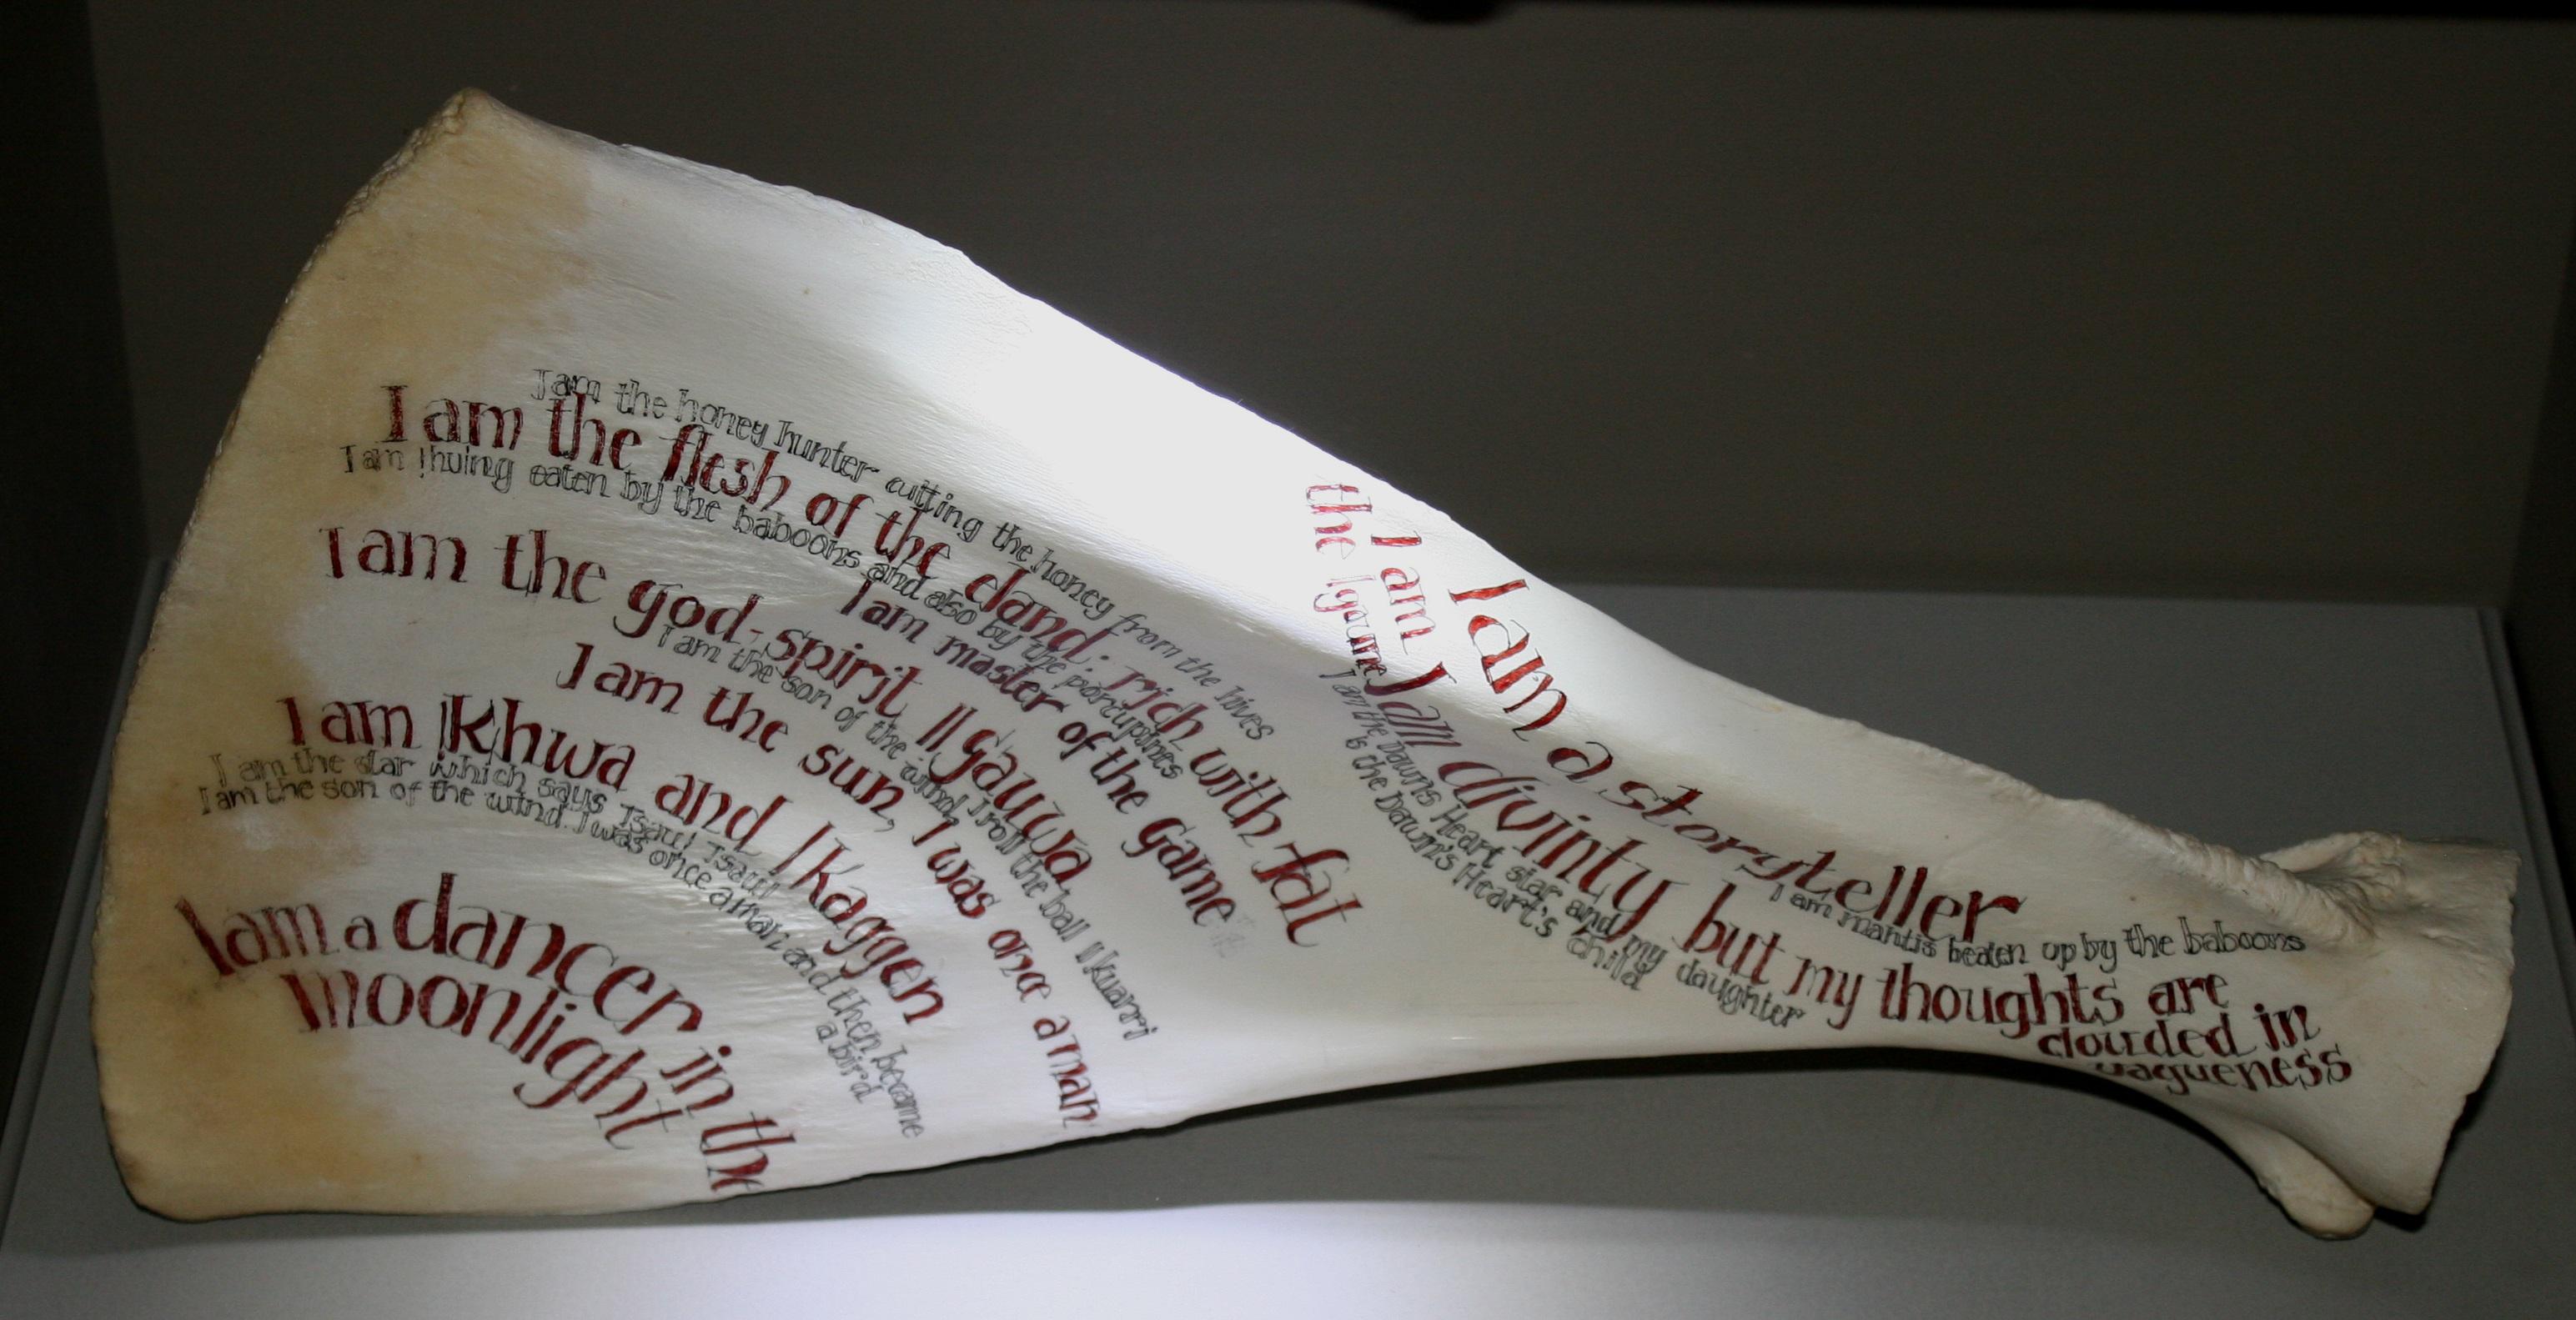 I am the honey hunter cutting the honey from the hives
I am the flesh of the eland. rich with fat
I am !huing eaten by the baboons and also by the porcupines
I am master of the Game
I am the god-spirit ||Gauwa
I am the son of the wind, I roll the ball ||kuarri
I am the sun, I was once a man
I am |Khwa and |Kaggen
I am the star which says Tsau! Tsau!
I am the son of the wind. I was once a man and then became
a bird
I am a dancer in the
moonlight
I am a storyteller
I am mantis beaten up by the baboons
I am
the Igaune
I am divinty but my thoughts are
clouded in
vagueness
I am the Dawns Heart star and my daughter
is the Dawn's Heart's child